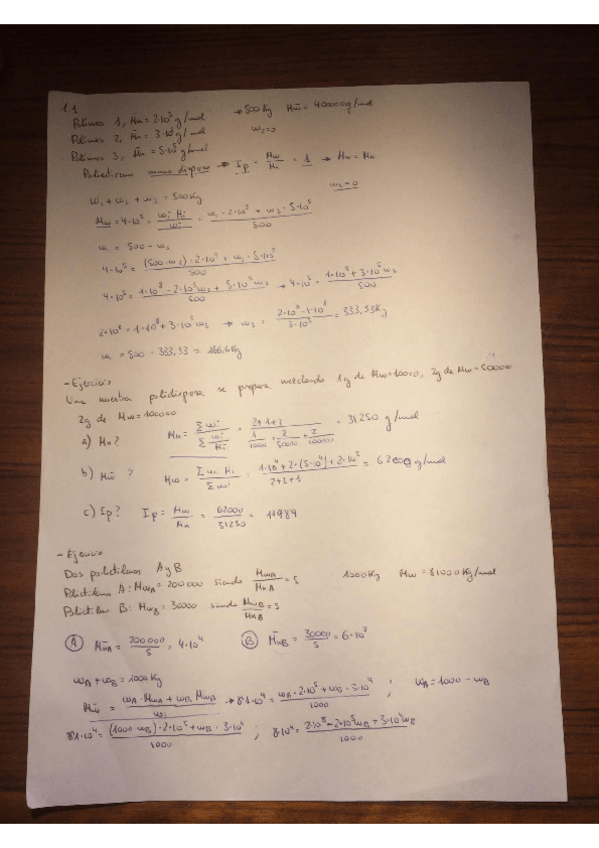 1.1
Polímero 1, M̄n = 2·10⁵ g/mol → 500 Kg M̄w = 400000 g/mol
Polímero 2, M̄n = 3·10⁵ g/mol w₂=0
Polímero 3, M̄n = 5·10⁵ g/mol
→ Ip = Mw/Mn = 1 → Mw = Mn
w₁ + w₂ + w₃ = 500 Kg w₂ = 0
Mw = 4·10⁵ = wi Mi / wi = w₁·2·10⁵ + w₃·5·10⁵ / 500
w₁ = 500 - w₃
4·10⁵ = (500-w₃)·2·10⁵ + w₃·5·10⁵ / 500
4·10⁵ = 1·10⁸ - 2·10⁵w₃ + 5·10⁵w₃ / 500 → 4·10⁵ = 1·10⁸ + 3·10⁵w₃ / 500
2·10⁸ = 1·10⁸ + 3·10⁵w₃ → w₃ = 2·10⁸ - 1·10⁸ / 3·10⁵ = 333,33 Kg
w₁ = 500 - 333,33 = 166,6 Kg
- Ejercicio
Una muestra polidispersa se prepara mezclando 1g de Mw=10000, 2g de Mw=50000
2g de Mw=100000
a) Mn? Mn = Σwi / Σ wi/Mi = 2+1+2 / = 31250 g/mol
b) M̄w? Mw = Σwi Mi / Σwi = 1·10⁴ + 2·(5·10⁴) + 2·10⁵ / 2+2+1 = 62000 g/mol
c) Ip? Ip = Mw/Mn = 62000/31250 = 1'984
- Ejercicio
Dos polietilenos A y B
Polietileno A: MwA = 200000 siendo MwA/MnA = 5 1000 Kg Mw = 81000 Kg/mol
Polietileno B: MwB = 30000 siendo MwB/MnB = 5
Ⓐ M̄nA = 200.000/5 = 4·10⁴ Ⓑ M̄nB = 30000/5 = 6·10³
wA + wB = 1000 Kg
M̄w = wA·MwA + wB MwB / wi → 8'1·10⁴ = wA·2·10⁵ + wB·3·10⁴ / 1000 ; wA = 1000 - wB
8'1·10⁴ = (1000-wB)·2·10⁵ + wB·3·10⁴ / 1000 ; 8·10⁴ = 2·10⁸ - 2·10⁵wB + 3·10⁴wB / 1000